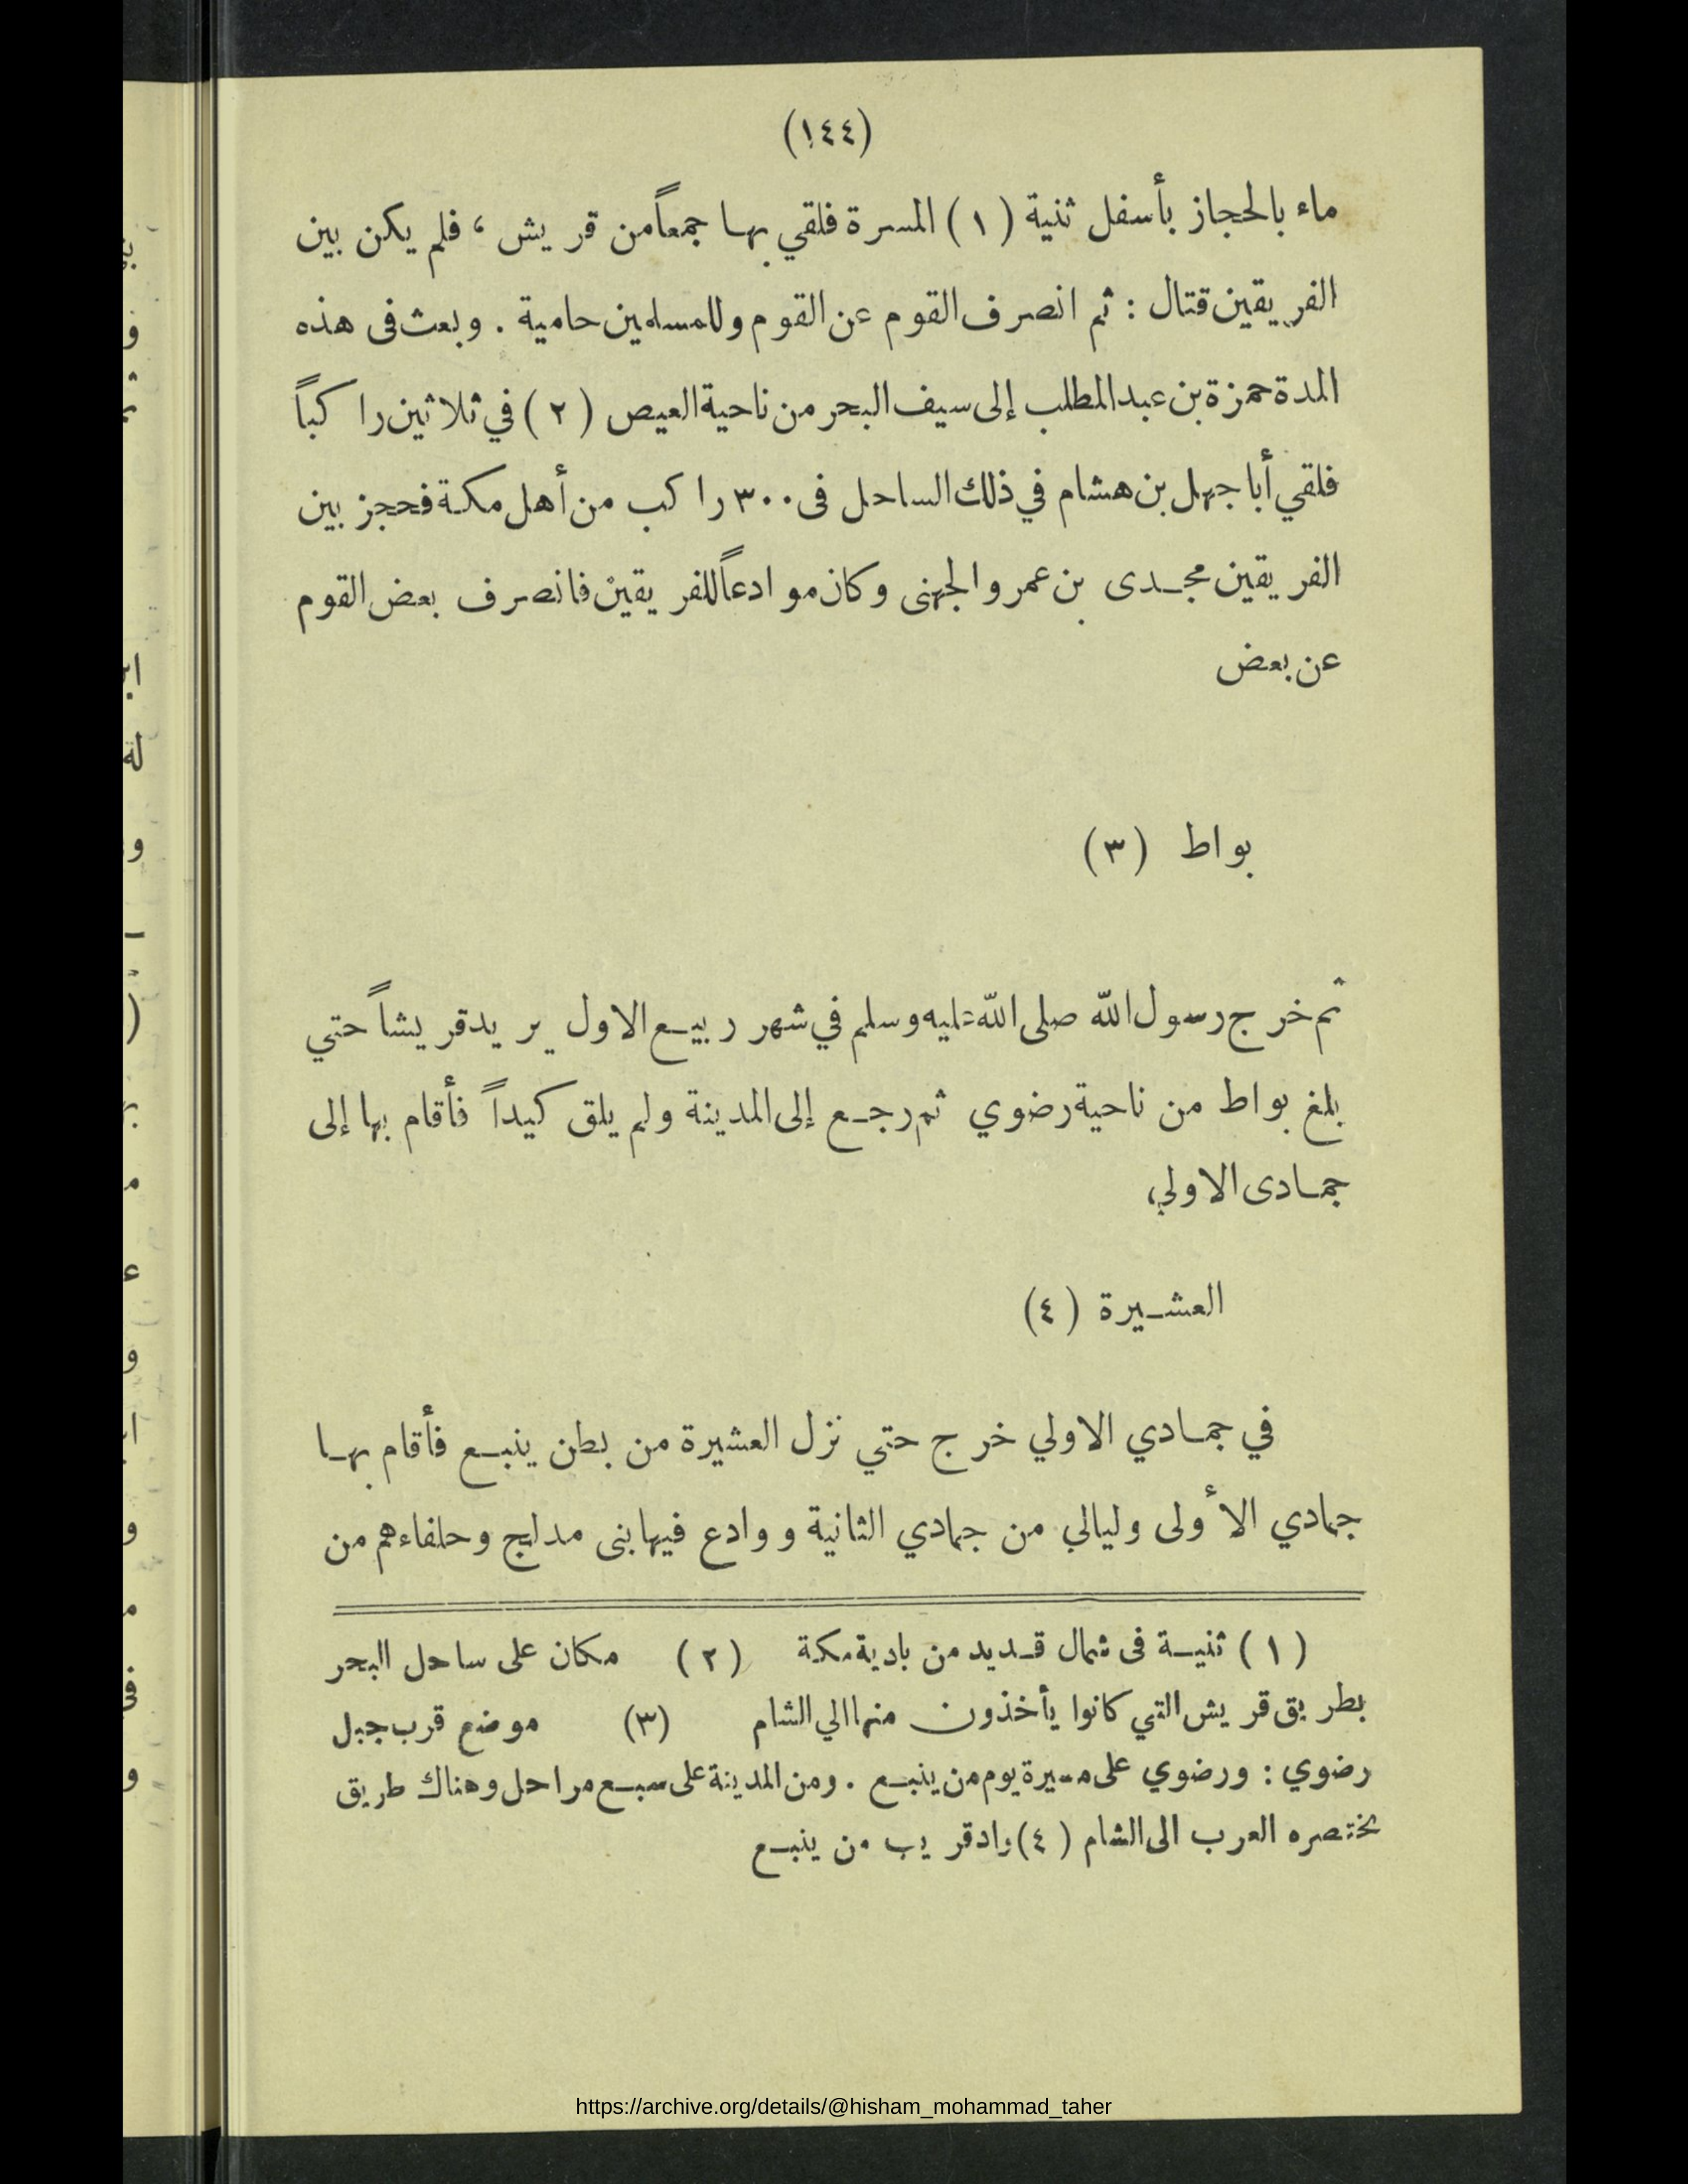 (١٤٤)
ماء بالحجاز بأسفل ثنية (١) المسرة فلقي بها جمعاً من قريش، فلم يكن بين
الفريقين قتال : ثم انصرف القوم عن القوم وللمسلمين حامية . وبعث فى هذه
المدة حمزة بن عبد المطلب إلى سيف البحر من ناحية العيص (٢) في ثلاثين راكباً
فلقي أبا جهل بن هشام في ذلك الساحل فى ٣٠٠ راكب من أهل مكة فحجز بين
الفريقين مجدى بن عمرو الجهنى وكان موادعاً للفريقين فانصرف بعض القوم
عن بعض
بواط (٣)
ثم خرج رسول الله صلى الله عليه وسلم في شهر ربيع الاول يريد قريشاً حتي
بلغ بواط من ناحية رضوي ثم رجع إلى المدينة ولم يلق كيداً فأقام بها إلى
جمادى الاولي
العشيرة (٤)
في جمادي الاولي خرج حتي نزل العشيرة من بطن ينبع فأقام بها
جمادي الأولى وليالي من جمادي الثانية ووادع فيها بنى مدلج وحلفاءهم من
(١) ثنية فى شمال قديد من بادية مكة (٢) مكان على ساحل البحر
بطريق قريش التي كانوا يأخذون منها الي الشام (٣) موضع قرب جبل
رضوي : ورضوي على مسيرة يوم من ينبع . ومن المدينة على سبع مراحل وهناك طريق
يختصره العرب الى الشام (٤) واد قريب من ينبع
https://archive.org/details/@hisham_mohammad_taher